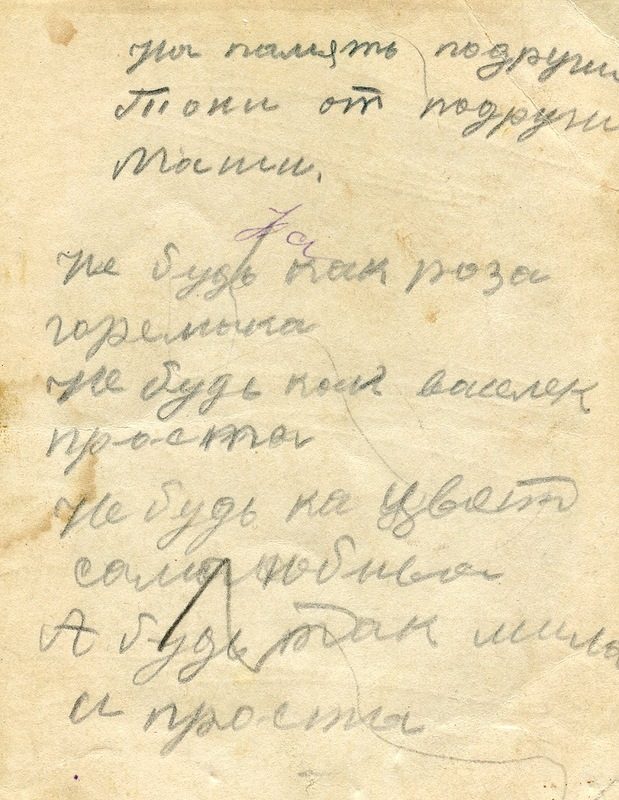 На память подруги
Тони от подруги
Маши.
На
Не будь как роза
горемыка
Не будь как васелек
проста
Не будь ка цвет
самалюбива
А будь так мила
и проста